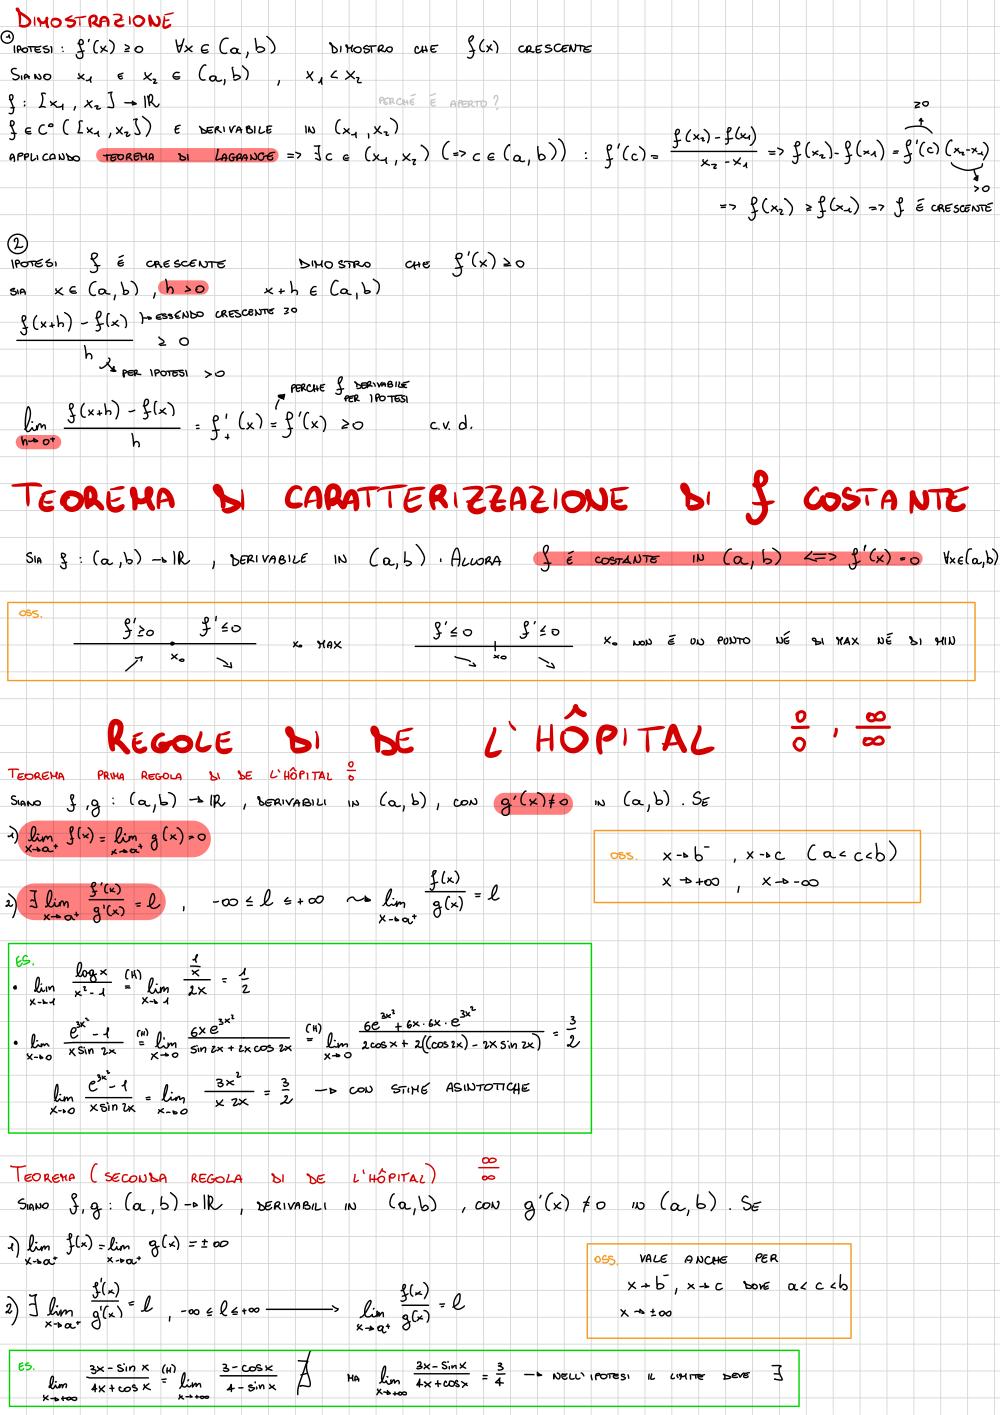 DIMOSTRAZIONE
① IPOTESI : f'(x) ≥ 0 ∀x ∈ (a,b) DIMOSTRO CHE f(x) CRESCENTE
SIANO x₁ E x₂ ∈ (a,b) , x₁ < x₂
f : [x₁ , x₂] → IR PERCHÉ É APERTO ?
f ∈ C° ([x₁ , x₂]) E DERIVABILE IN (x₁ , x₂)
APPLICANDO TEOREMA DI LAGRANGE => ∃ c ∈ (x₁ , x₂) (=> c ∈ (a,b)) : f'(c) = (f(x₂) - f(x₁))/(x₂ - x₁) => f(x₂) - f(x₁) = f'(c) (x₂-x₁)
≥0
>0
=> f(x₂) ≥ f(x₁) => f É CRESCENTE
②
IPOTESI f É CRESCENTE DIMOSTRO CHE f'(x) ≥ 0
SIA x ∈ (a,b) , h > 0 x+h ∈ (a,b)
(f(x+h) - f(x))/h ≥ 0
ESSENDO CRESCENTE ≥0
PER IPOTESI >0
PERCHE f DERIVABILE PER IPOTESI
lim h→0⁺ (f(x+h) - f(x))/h = f'₊(x) = f'(x) ≥ 0 c.v.d.
TEOREMA DI CARATTERIZZAZIONE DI f COSTANTE
SIA f : (a,b) → IR , DERIVABILE IN (a,b) . ALLORA f É COSTANTE IN (a,b) <=> f'(x) = 0 ∀x∈(a,b)
OSS.
f' ≥ 0 f' ≤ 0 x₀ MAX f' ≤ 0 f' ≤ 0 x₀ NON É UN PUNTO NÉ DI MAX NÉ DI MIN
↗ x₀ ↘ ↘ x₀ ↘
REGOLE DI DE L'HÔPITAL 0/0 , ∞/∞
TEOREMA PRIMA REGOLA DI DE L'HÔPITAL 0/0
SIANO f , g : (a,b) → IR , DERIVABILI IN (a,b) , CON g'(x) ≠ 0 IN (a,b) . SE
1) lim x→a⁺ f(x) = lim x→a⁺ g(x) = 0
OSS. x → b⁻ , x → c (a < c < b)
x → +∞ , x → -∞
2) ∃ lim x→a⁺ f'(x)/g'(x) = l , -∞ ≤ l ≤ +∞ ⇝ lim x→a⁺ f(x)/g(x) = l
ES.
• lim x→1 log x/(x² - 1) =(H) lim x→1 (1/x)/2x = 1/2
• lim x→0 (e^3x² - 1)/(x sin 2x) =(H) lim x→0 6x e^3x²/(sin 2x + 2x cos 2x) =(H) lim x→0 (6e^3x² + 6x · 6x · e^3x²)/(2 cos x + 2((cos 2x) - 2x sin 2x)) = 3/2
lim x→0 (e^3x² - 1)/(x sin 2x) = lim x→0 3x²/(x 2x) = 3/2 → CON STIME ASINTOTICHE
TEOREMA ( SECONDA REGOLA DI DE L'HÔPITAL) ∞/∞
SIANO f, g : (a,b) → IR , DERIVABILI IN (a,b) , CON g'(x) ≠ 0 IN (a,b) . SE
1) lim x→a⁺ f(x) = lim x→a⁺ g(x) = ±∞
OSS. VALE ANCHE PER
x → b⁻ , x → c DOVE a < c < b
x → ±∞
2) ∃ lim x→a⁺ f'(x)/g'(x) = l , -∞ ≤ l ≤ +∞ → lim x→a⁺ f(x)/g(x) = l
ES. lim x→+∞ (3x - sin x)/(4x + cos x) =(H) lim x→+∞ (3 - cos x)/(4 - sin x) ∄ MA lim x→+∞ (3x - sin x)/(4x + cos x) = 3/4 → NELL'IPOTESI IL LIMITE DEVE ∃